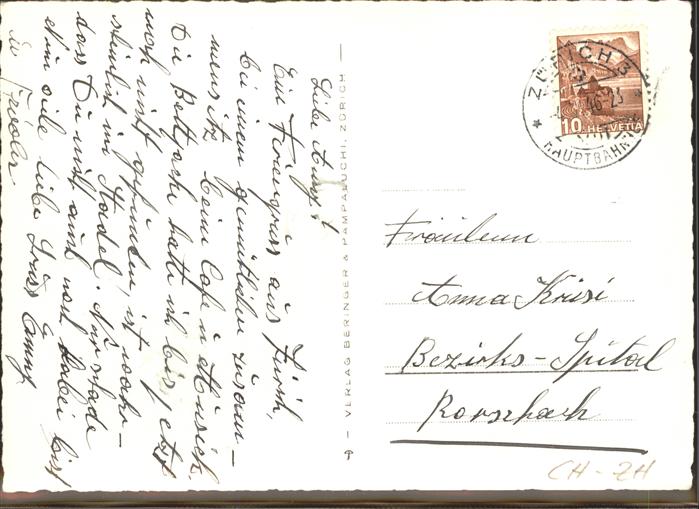 Liebe Anny!
Ein Feriengruss aus Zürich,
bei einem gemütlichen zusam-
mensitz beim Cafe u Musich.
Die Bettjacke hatte ich bis jetzt
noch nicht gefunden, ist wahr-
scheinlich im Stadel. Nur schade
dass Du nicht auch noch dabei bist
viele liebe Grüsse Emmy
VERLAG BERINGER & PAMPALUCHI, ZÜRICH
ZÜRICH 3
46-23
HAUPTBAHNHOF
10 HELVETIA
Fräulein
Anna Krisi
Bezirks-Spital
Rorschach
CH-ZH